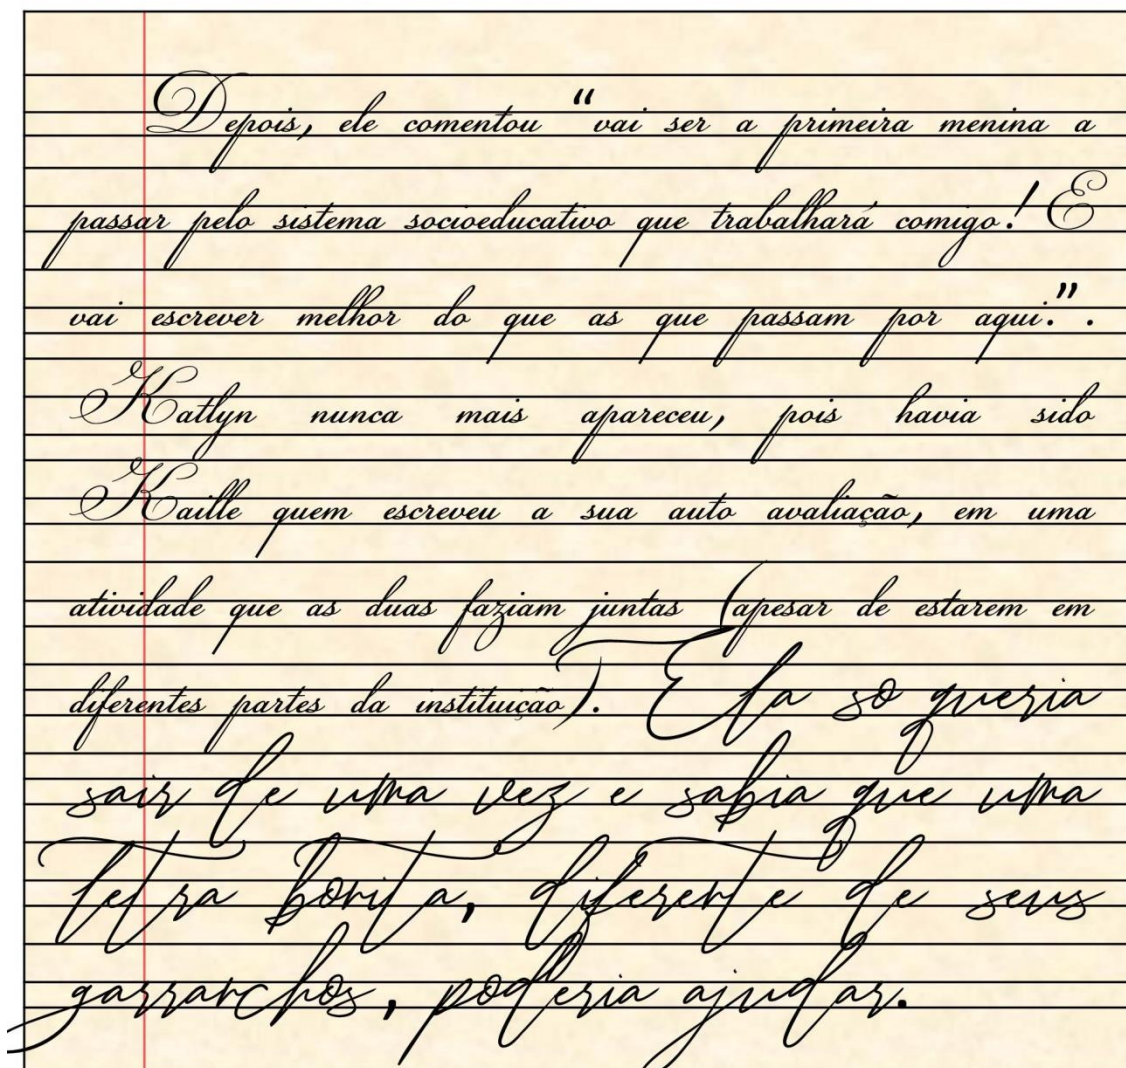 Depois, ele comentou “vai ser a primeira menina a
passar pelo sistema socioeducativo que trabalhará comigo! E
vai escrever melhor do que as que passam por aqui.”.
Katlyn nunca mais apareceu, pois havia sido
Kaille quem escreveu a sua auto avaliação, em uma
atividade que as duas faziam juntas (apesar de estarem em
diferentes partes da instituição). Ela só queria
sair de uma vez e sabia que uma
letra bonita, diferente de seus
garranchos, poderia ajudar.